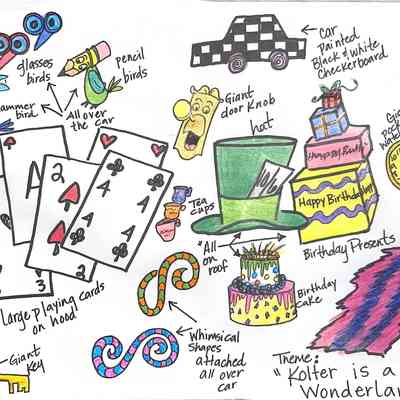 glasses
birds
pencil
birds
hammer
bird
All over
the car
Car
Painted
Black & White
Checkerboard
Giant
door Knob
hat
Giant
pocket
Watch
A
2
2
3
4
4
4
4
Tea
cups
*All
on
roof
Happy Birthday
Birthday Presents
Birthday
cake
Large playing cards
on hood
Whimsical
Shapes
attached
all over
car
Giant
Key
Theme:
"Kolter is a
Wonderlan